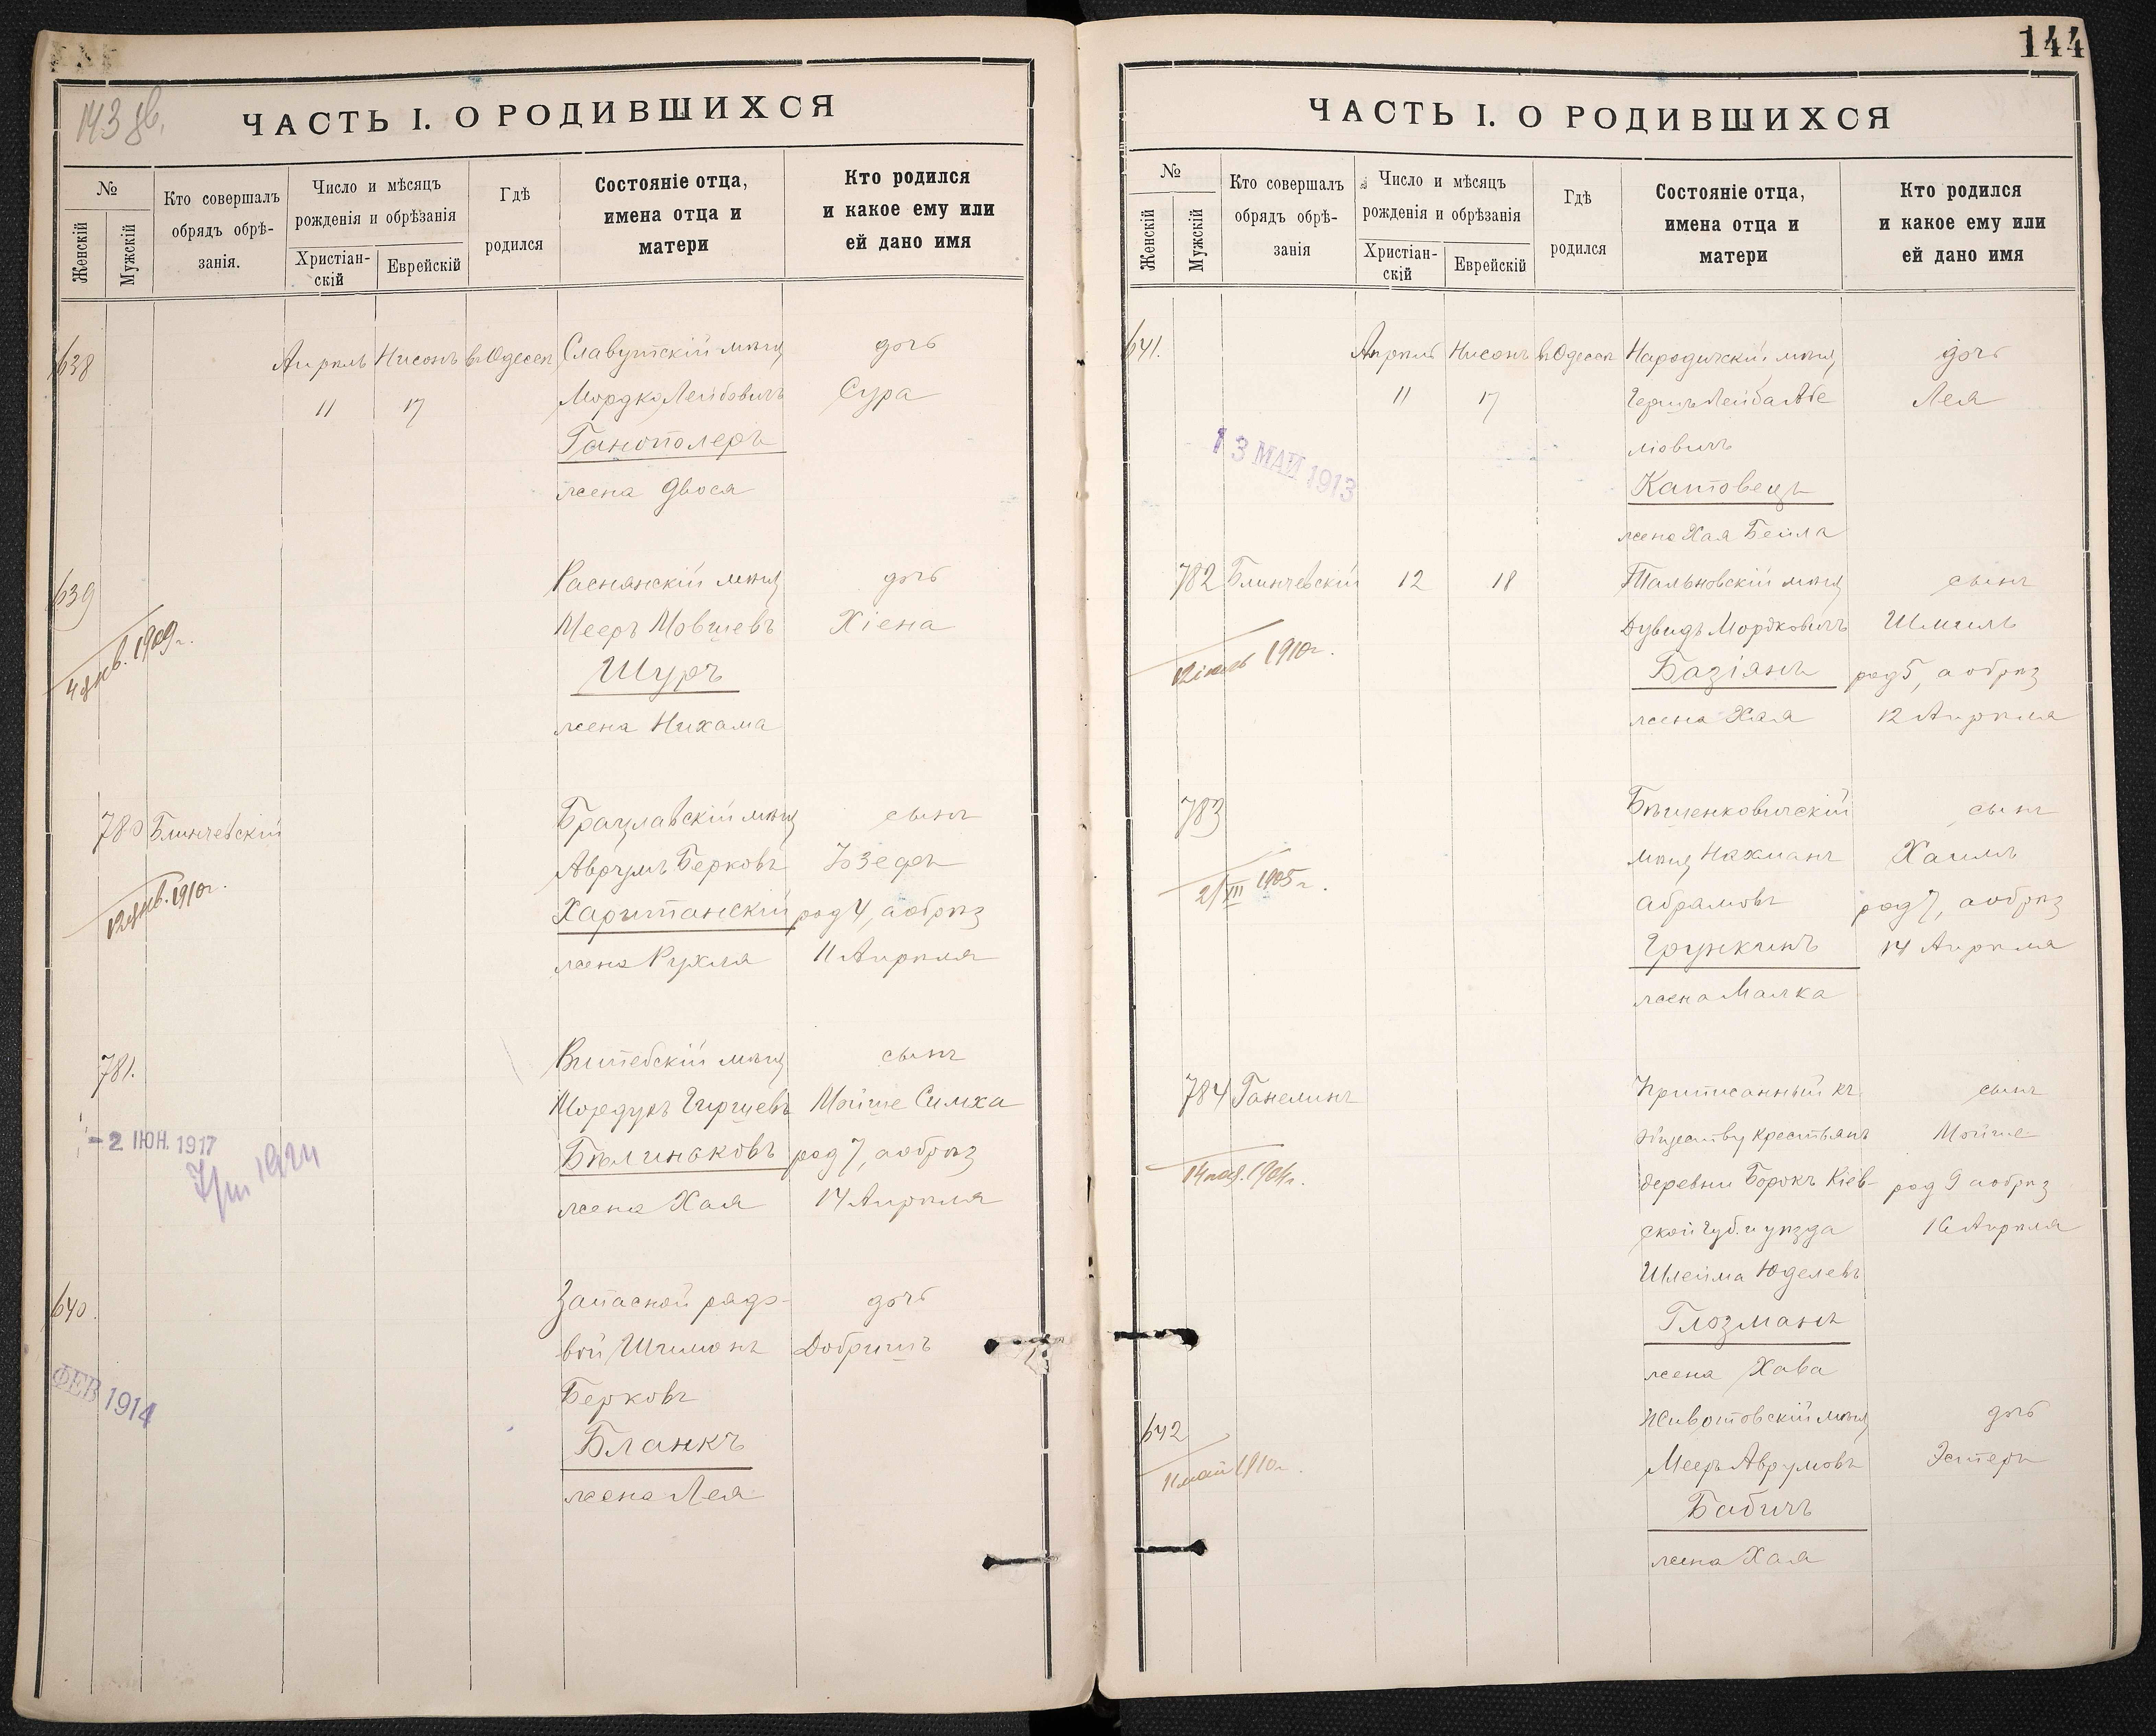 143 об.
ЧАСТЬ I. О РОДИВШИХСЯ
№
Женскій
Мужскій
Кто совершалъ
обрядъ обрѣ-
занія.
Число и мѣсяцъ
рожденія и обрѣзанія
Христіан-
скій
Еврейскій
Гдѣ
родился
Состояніе отца,
имена отца и
матери
Кто родился
и какое ему или
ей дано имя
638 Апрѣль Нисонъ въ Одессѣ Славутскій мѣщ дочь
11 17 Мордко Лейбовичъ Сура
Ганополеръ
жена Двося
639 Раснянскій мѣщ дочь
Мееръ Мовшевъ Хіена
4 янв. 1909 г.
Шуръ
жена Нихама
780 Блинчевскій Брацлавскій мѣщ сынъ
Аврумъ Берковъ Іозефъ
12 янв. 1910 г.
Хаританскій род 4, а обрѣз
жена Рухля 11 Апрѣля
781. Витебскій мѣщ сынъ
Мордухъ Гиршевъ Мойше Симха
- 2 ІЮН. 1917
Бѣлинаковъ род 7, а обрѣз
7/III 1924
жена Хая 14 Апрѣля
640. Запасной рядо-
вой Шимонъ Добришъ
дочь
Берковъ
ФЕВ 1914
Бланкъ
жена Лея
144
ЧАСТЬ I. О РОДИВШИХСЯ
№
Женскій
Мужскій
Кто совершалъ
обрядъ обрѣ-
занія
Число и мѣсяцъ
рожденія и обрѣзанія
Христіан-
скій
Еврейскій
Гдѣ
родился
Состояніе отца,
имена отца и
матери
Кто родился
и какое ему или
ей дано имя
641. Апрѣль Нисонъ въ Одессѣ Народичскій мѣщ дочь
11 17 Герцъ Лейба Абе Лея
ліовичъ
13 МАЙ 1913
Катовецъ
жена Хая Бейла
782 Блинчевскій 12 18 Тальновскій мѣщ сынъ
Дувидъ Мордковичъ Шмиль
12 іюль 1910 г.
Базіянъ род 5, а обрѣз
жена Хая 12 Апрѣля
783 Бѣшенковичскій сынъ
мѣщ Нахманъ Хаимъ
21/III 1905 г.
Абрамовъ род 7, а обрѣз
Грункинъ 14 Апрѣля
жена Малка
784 Ганелинъ Приписанный къ сынъ
обществу крестьянъ Мойше
14 1904 г.
деревни Борокъ Кіев- род 9 а обрѣз
ской губ. и уѣзда 16 Апрѣля
Шлейма Юделевъ
Глозманъ
жена Хава
642 Животовскій мѣщ дочь
Мееръ Аврумовъ Эстеръ
11 май 1910 г.
Бабичъ
жена Хая